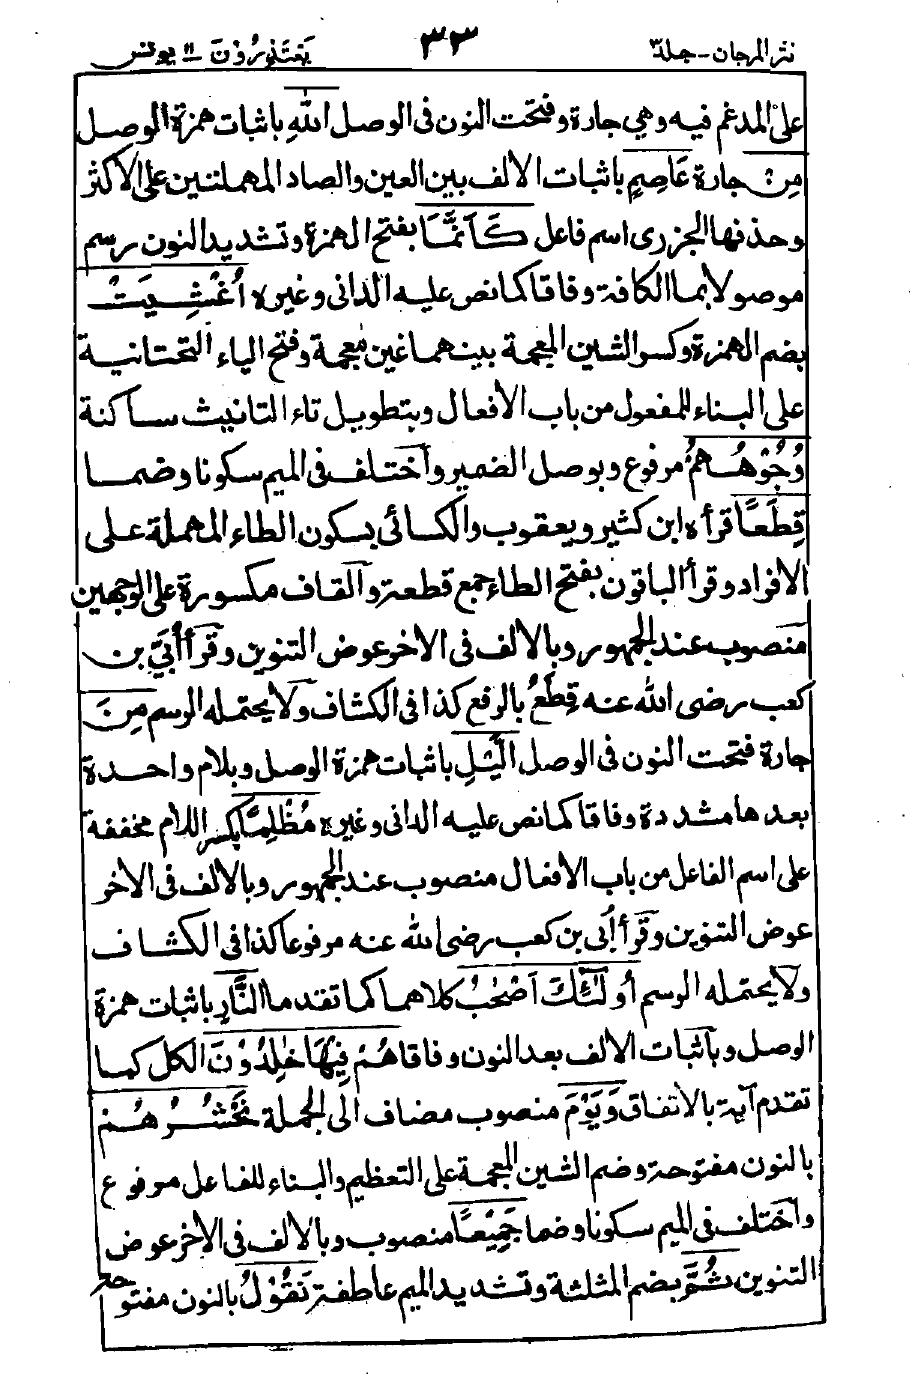 نثر المرجان - جلد ٣ ٣٣ يَعْتَذِرُوْنَ ١١ يونس
على المدغم فيه وهي جارة وفتحت النون فى الوصل اللّٰهِ باثبات همزة الوصل
مِنْ جارة عَاصِمٍ باثبات الالف بين العين والصاد المهملتين على الاكثر
وحذفها الجزرى اسم فاعل كَاَنَّمَا بفتح الهمزة وتشديد النون رسم
موصولا بما الكافة وفاقا كما نص عليه الدانى وغيره اُغْشِيَتْ
بضم الهمزة وكسر الشين المعجمة بينهما غين معجمة وفتح الياء التحتانية
على البناء للمفعول من باب الأفعال وبتطويل تاء التانيث ساكنة
وُجُوْهُهُمْ مرفوع وبوصل الضمير واختلف فى الميم سكونا وضما
قِطَعًا قرأه ابن كثير ويعقوب والكسائى بسكون الطاء المهملة على
الافراد وقرأ الباقون بفتح الطاء جمع قطعة والقاف مكسورة على الوجهين
منصوب عند الجمهور وبالالف فى الاخر عوض التنوين وقرأ أُبَيّ بن
كعب رضى الله عنه قِطَعٌ بالرفع كذا فى الكشاف ولا يحتمله الرسم مِنَ
جارة فتحت النون فى الوصل الَّيْلِ باثبات همزة الوصل وبلام واحدة
بعدها مشددة وفاقا كما نص عليه الدانى وغيره مُظْلِمًا بكسر اللام مخففة
على اسم الفاعل من باب الافعال منصوب عند الجمهور وبالالف فى الاخر
عوض التنوين وقرأ أبى بن كعب رضى الله عنه مرفوعا كذا فى الكشاف
ولا يحتمله الرسم أُولٰۤئِكَ اَصْحٰبُ كلاهما كما تقدما النَّارِ باثبات همزة
الوصل وباثبات الالف بعد النون وفاقا هُمْ فِيْهَا خٰلِدُوْنَ الكل كما
تقدم آية بالاتفاق وَيَوْمَ منصوب مضاف الى الجملة نَحْشُرُهُمْ
بالنون مفتوحة وضم الشين المعجمة على التعظيم والبناء للفاعل مرفوع
واختلف فى الميم سكونا وضما جَمِيْعًا منصوب وبالالف فى الاخر عوض
التنوين ثُمَّ بضم المثلثة وتشديد الميم عاطفة نَقُوْلُ بالنون مفتوحة